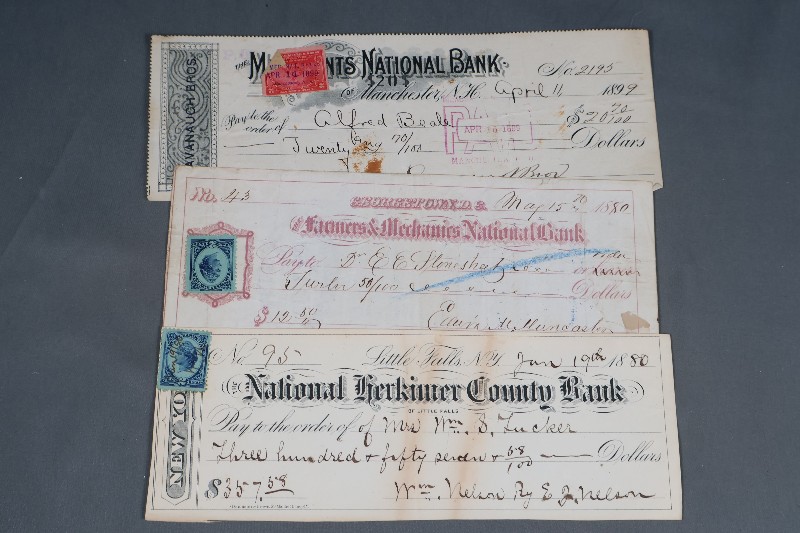 THE MERCHANTS NATIONAL BANK
KAVANAUGH BROS.
No. 2195
OF Manchester, N.H. April 11 1899
Pay to the order of Alfred Beale $20 70/100
Twenty 70/100 Dollars
APR 10 1899
No. 43 GEORGETOWN, D.C. May 15 1880
THE Farmers & Mechanics National Bank
Pay to Dr. E E Stoneshat or order
Twelve 50/100 Dollars
$12.50 Edwin M. Muncaster
No 95 Little Falls, N.Y. Jan 19th 1880
THE National Herkimer County Bank
OF LITTLE FALLS
NEW YO
Pay to the order of of Mrs Wm. S. Tucker
Three hundred & fifty seven & 58/100 Dollars
$357.58 Wm. Nelson By E J. Nelson